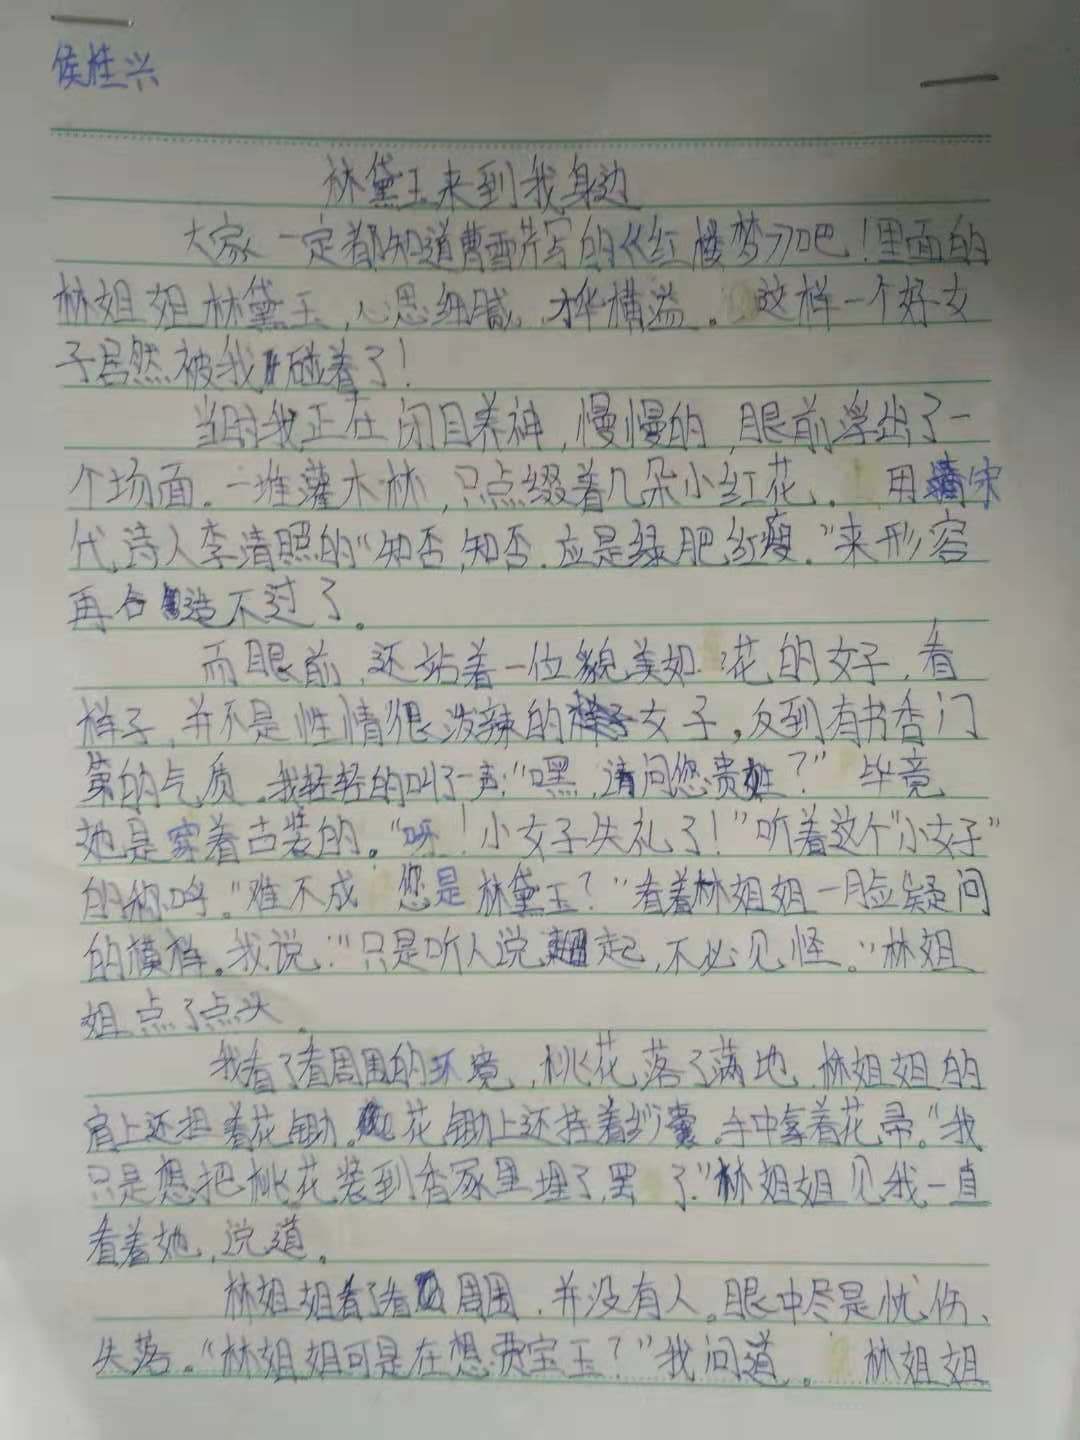 侯桂兴
林黛玉来到我身边
大家一定都知道曹雪芹写的《红楼梦》吧！里面的
林姐姐林黛玉，心思细腻，才华横溢。这样一个好女
子居然被我碰着了！
当时我正在闭目养神，慢慢的，眼前浮出了一
个场面。一堆灌木林，只点缀着几朵小红花。用宋
代诗人李清照的“知否，知否．应是绿肥红瘦．”来形容
再合造不过了。
而眼前，还站着一位貌美如花的女子，看
样子，并不是性情很泼辣的女子，反到有书香门
第的气质．我轻轻的叫了一声：“嘿，请问您贵姓？”毕竟
她是穿着古装的。“呀！小女子失礼了！”听着这个“小女子”
的称呼。“难不成您是林黛玉？”看着林姐姐一脸疑问
的模样。我说：“只是听人说起，不必见怪。”林姐
姐点了点头．
我看了看周围的环境，桃花落了满地．林姐姐的
肩上还担着花锄。花锄上还持着纱囊．手中拿着花帚。“我
只是想把桃花装到香冢里埋了罢了．”林姐姐见我一直
看着她，说道。
林姐姐看了看周围，并没有人。眼中尽是忧伤、
失落。“林姐姐可是在想贾宝玉？”我问道．林姐姐